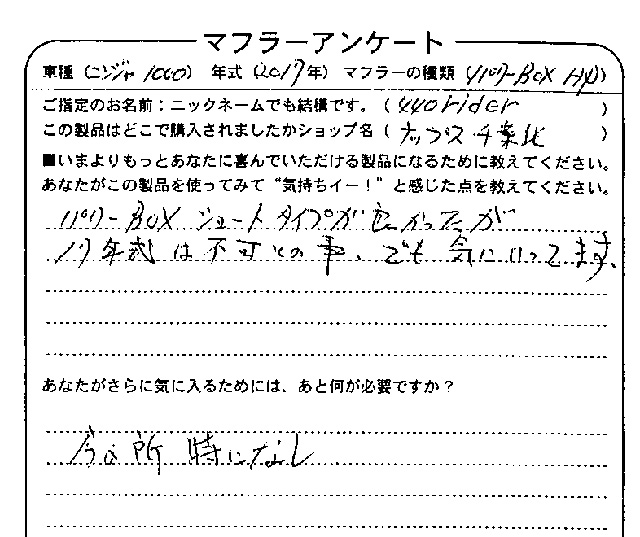 マフラーアンケート
車種(ニンジャ1000) 年式(2017年) マフラーの種類(パワーBOX )
ご指定のお名前:ニックネームでも結構です。(440rider)
この製品はどこで購入されましたかショップ名(ナップス千葉北)
■いまよりもっとあなたに喜んでいただける製品になるために教えてください。
あなたがこの製品を使ってみて“気持ちイー!”と感じた点を教えてください。
パワーBOX ショートタイプが良かったが
17年式は不可との事、でも気に入ってます。
あなたがさらに気に入るためには、あと何が必要ですか?
今の所 時になし